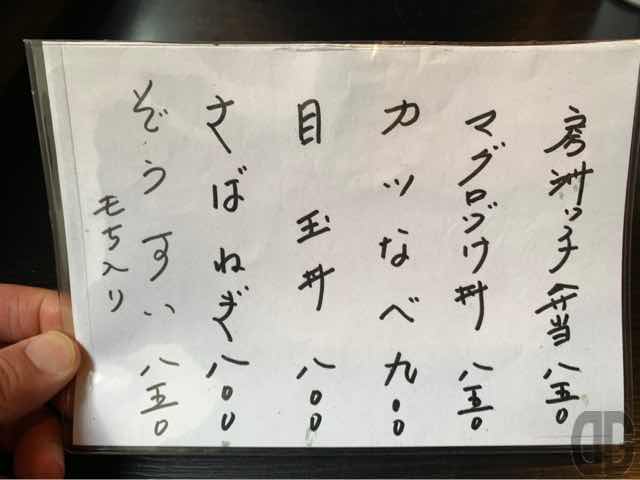 房洲っ子弁当 八五〇
マグロづけ丼 八五〇
カツなべ 九〇〇
目玉丼 八〇〇
さばねぎ 八〇〇
ぞうすい 八五〇
もち入り